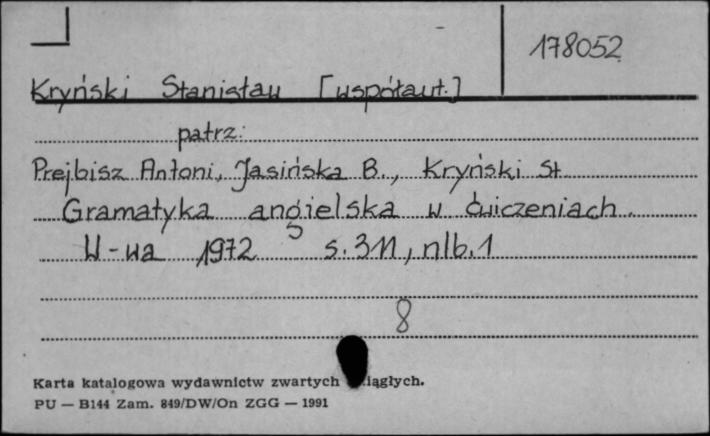 178052
Kryński Stanisław [współaut.]
patrz:
Prejbisz Antoni, Jasińska B., Kryński St
Gramatyka angielska w ćwiczeniach.
W-wa 1972 s. 311, nlb. 1
8
Karta katalogowa wydawnictw zwartych ciągłych.
PU — B144 Zam. 849/DW/On ZGG — 1991